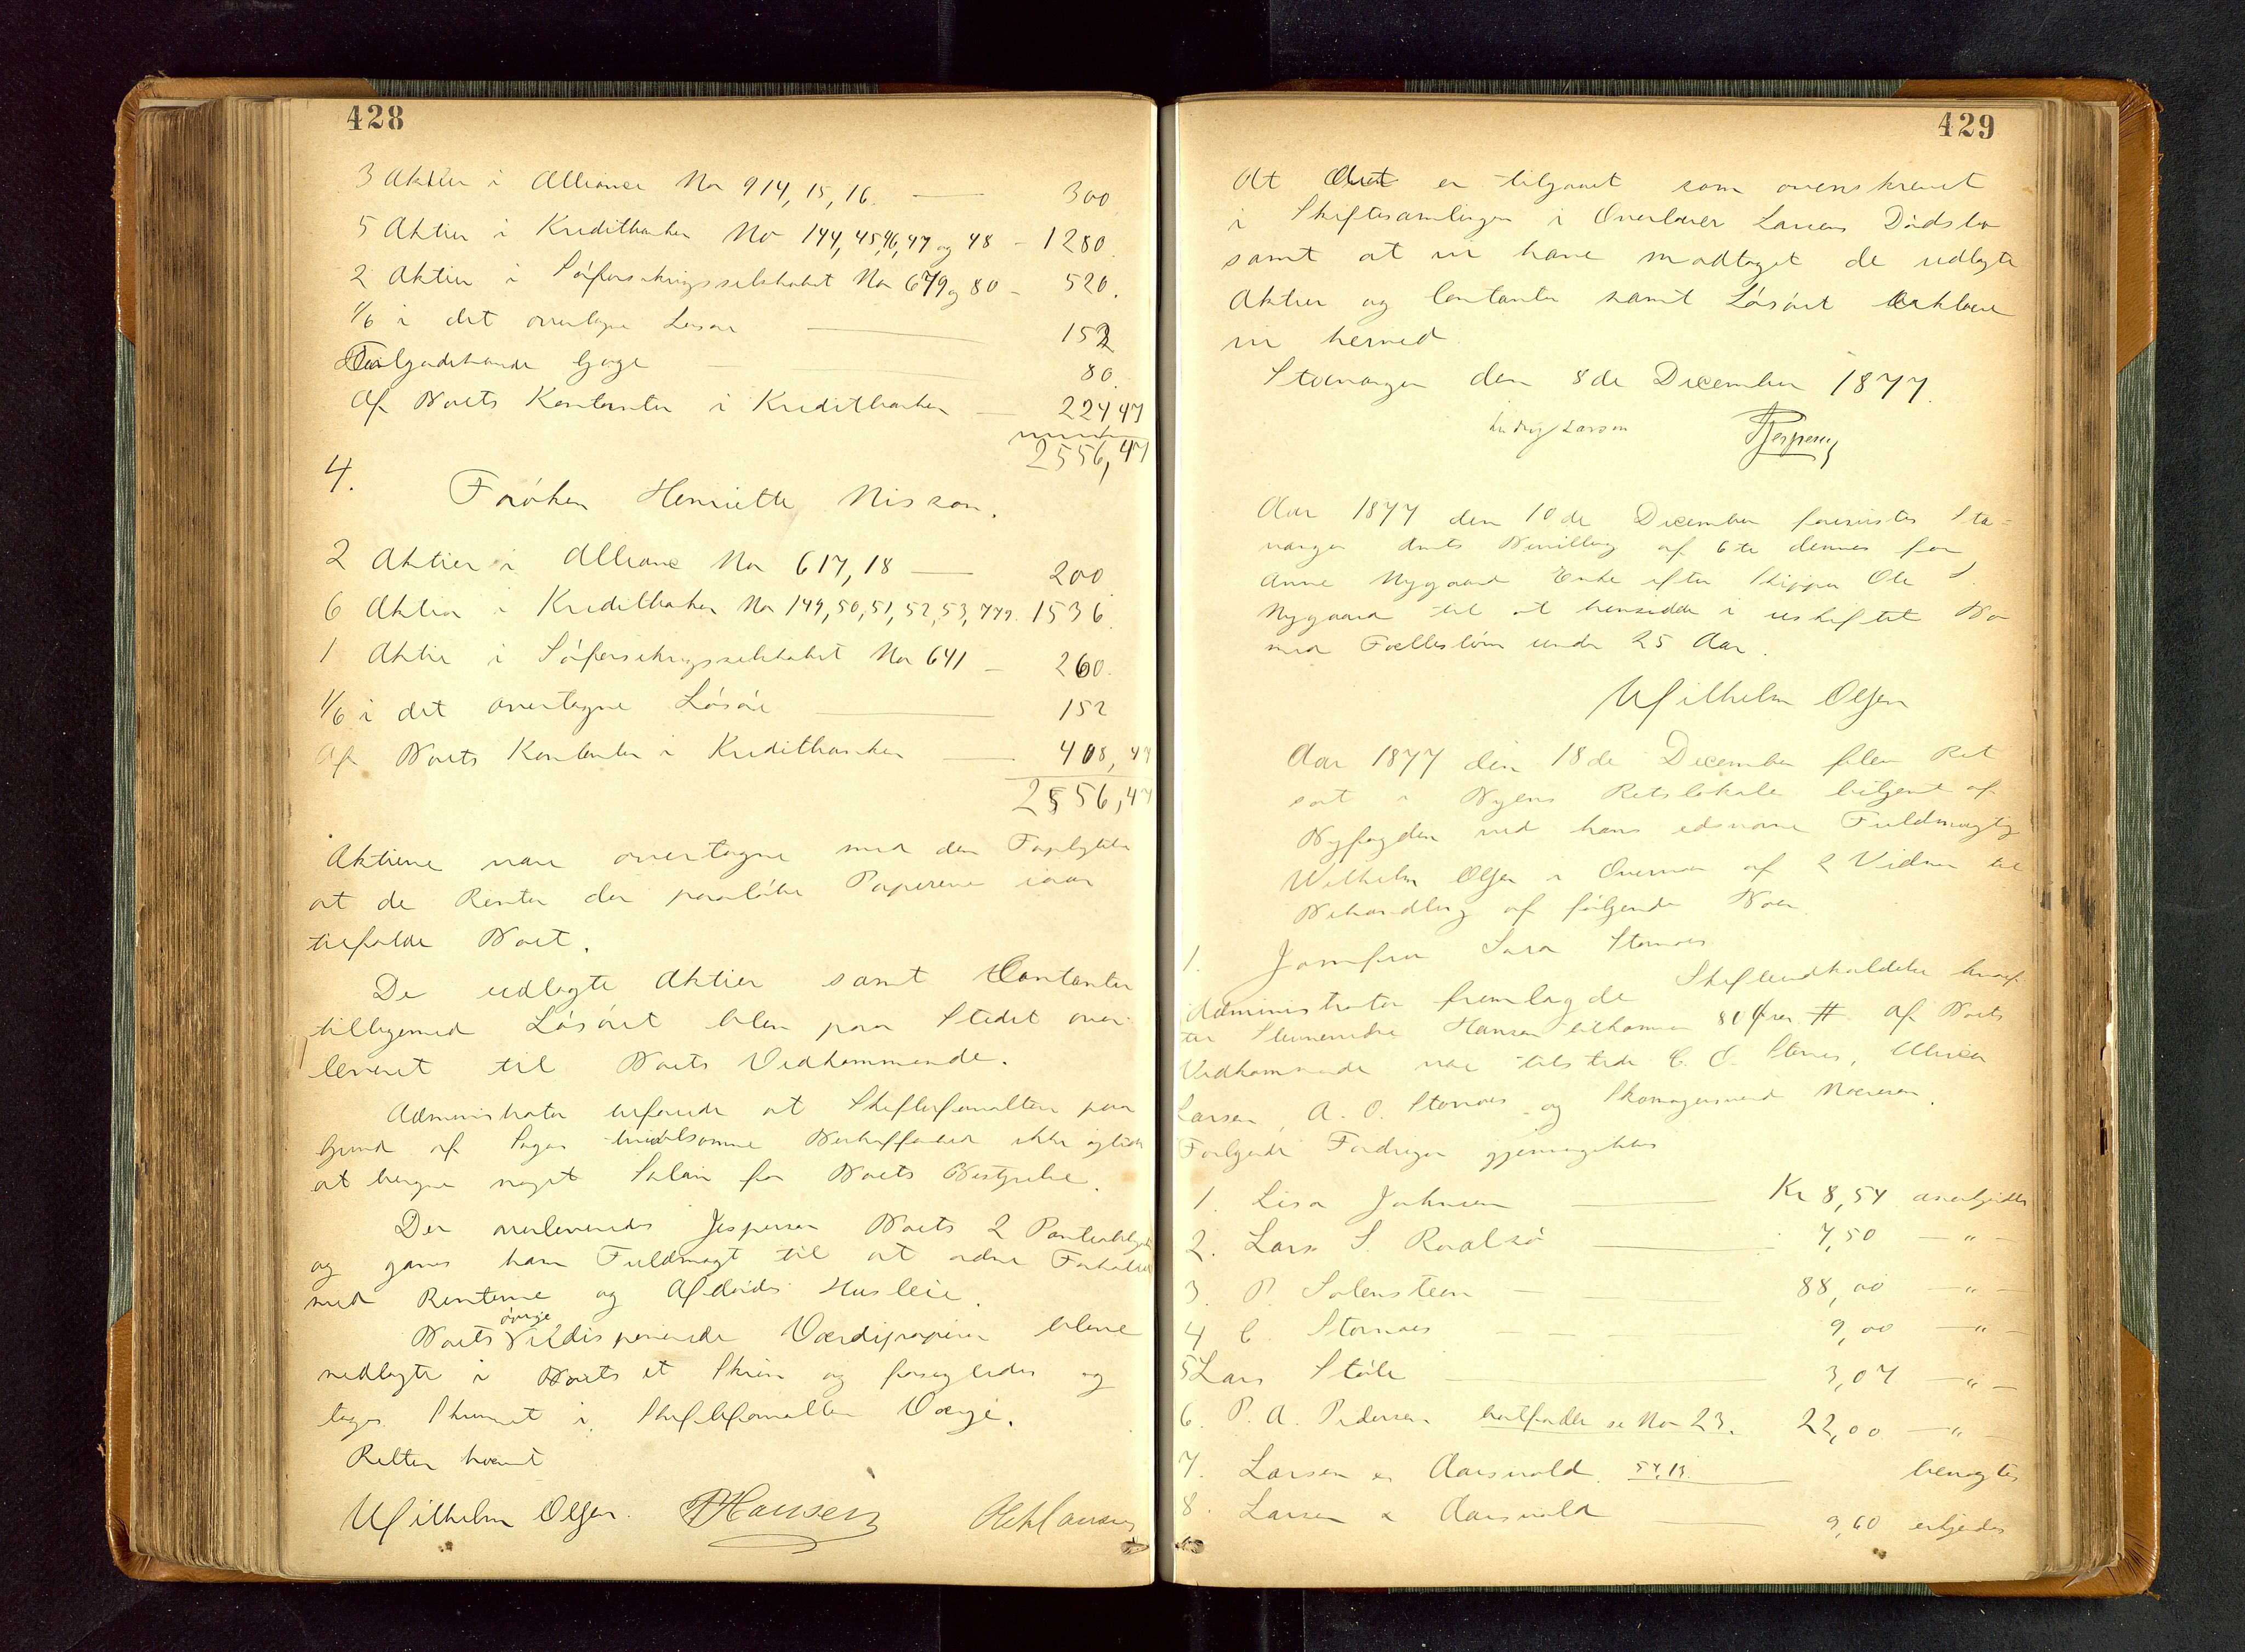 428
3 Aktier i Alliance No 914, 15, 16. — 300
5 Aktier i Kreditbanken No 144, 45, 46, 47 og 48 - 1280.
2 Aktier i Söforsikringsselskabet No 679 og 80 - 520.
1/6 i det overtagne Løsøre — 152
Tilgodehavende Gage — 80.
Af Boets Kontanter i Kreditbanken — 224 47
2556,47
4. Frøken Henriette Nisson.
2 Aktier i Alliance No 617, 18 — 200
6 Aktier i Kreditbanken No 149, 50, 51, 52, 53, 779. 1536.
1 Aktie i Söforsikringsselskabet No 641 - 260.
1/6 i det overtagne Løsøre — 152
Af Boets Kontanter i Kreditbanken — 408,47
2556,47
Aktierne vare overtagne med den Forpligtelse
at de Renter der paaløbe Papirerne iaar
tilfalde Boet.
De udlagte Aktier samt Contanter
tilligemed Løsøret blev paa Stedet over-
leveret til Boets Vedkommende.
Administrator erfarede at Skifteforvalteren paa
Grund af Sagens Beskaffenhed ikke
at beregne noget Salær for Boets Bestyrelse.
Der overleveredes Jespersen Boets 2
og gaves ham Fuldmagt til at ordne Forholdet
med Renterne og Afdødes Husleie.
øvrige
Boets Værdipapirer bleve
nedlagte i Boets et Skrin og forsegledes og
toges Skrinet i Skifteforvalterens Værge.
Retten hævet
Wilhelm Olsen. Hansen
429
At Arvet er tilgaaet som ovenskrevet
i Skiftesamlingen i Overlærer Larsens Dødsbo
samt at vi have modtaget de udlagte
Aktier og Contanter samt Løsøret erklære
vi herved.
Stavanger den 8de December 1877.
Ludvig Larsen Jespersen
Aar 1877 den 10de December forevistes Sta-
vanger Amts Bevilling af 6te dennes for
Anne Nygaard Enke efter Skipper Ole S.
Nygaard til at hensidde i uskiftet Bo
med Fællesbørn under 25 Aar.
Wilhelm Olsen
Aar 1877 den 18de December blev Ret
sat i Byens Retslokale betjent af
Byfogden ved hans edsvorne Fuldmægtig
Wilhelm Olsen i Overvær af 2 Vidner til
Behandling af følgende Boer
1. Jomfru Sara Stornæs
Administrator fremlagde Skifteindkaldelse hvoref-
ter Stevnevidne Hansen tilkommer 80 Øre #. Af Boets
Vedkommende var tilstede C. O. Stornæs,
Larsen, A. O. Stornæs og Skomagersvend
Følgende Fordringer gjennemgikkes
1. Lisa Johnsen — Kr 8,54 anerkjendtes
2. Lars S. Roalsø — 7,50 — " —
3. P. Solensteen — 88,00 — " —
4 C. Stornæs — 9,00 — " —
5 Lars Støle — 3,07 — " —
6. P. A. Pedersen bortfalder se No 23. 22,00 — " —
7. Larsen & Aarsvold. 57,19. — benægtes
8. Larsen & Aarsvold — 9,60 erkjendes